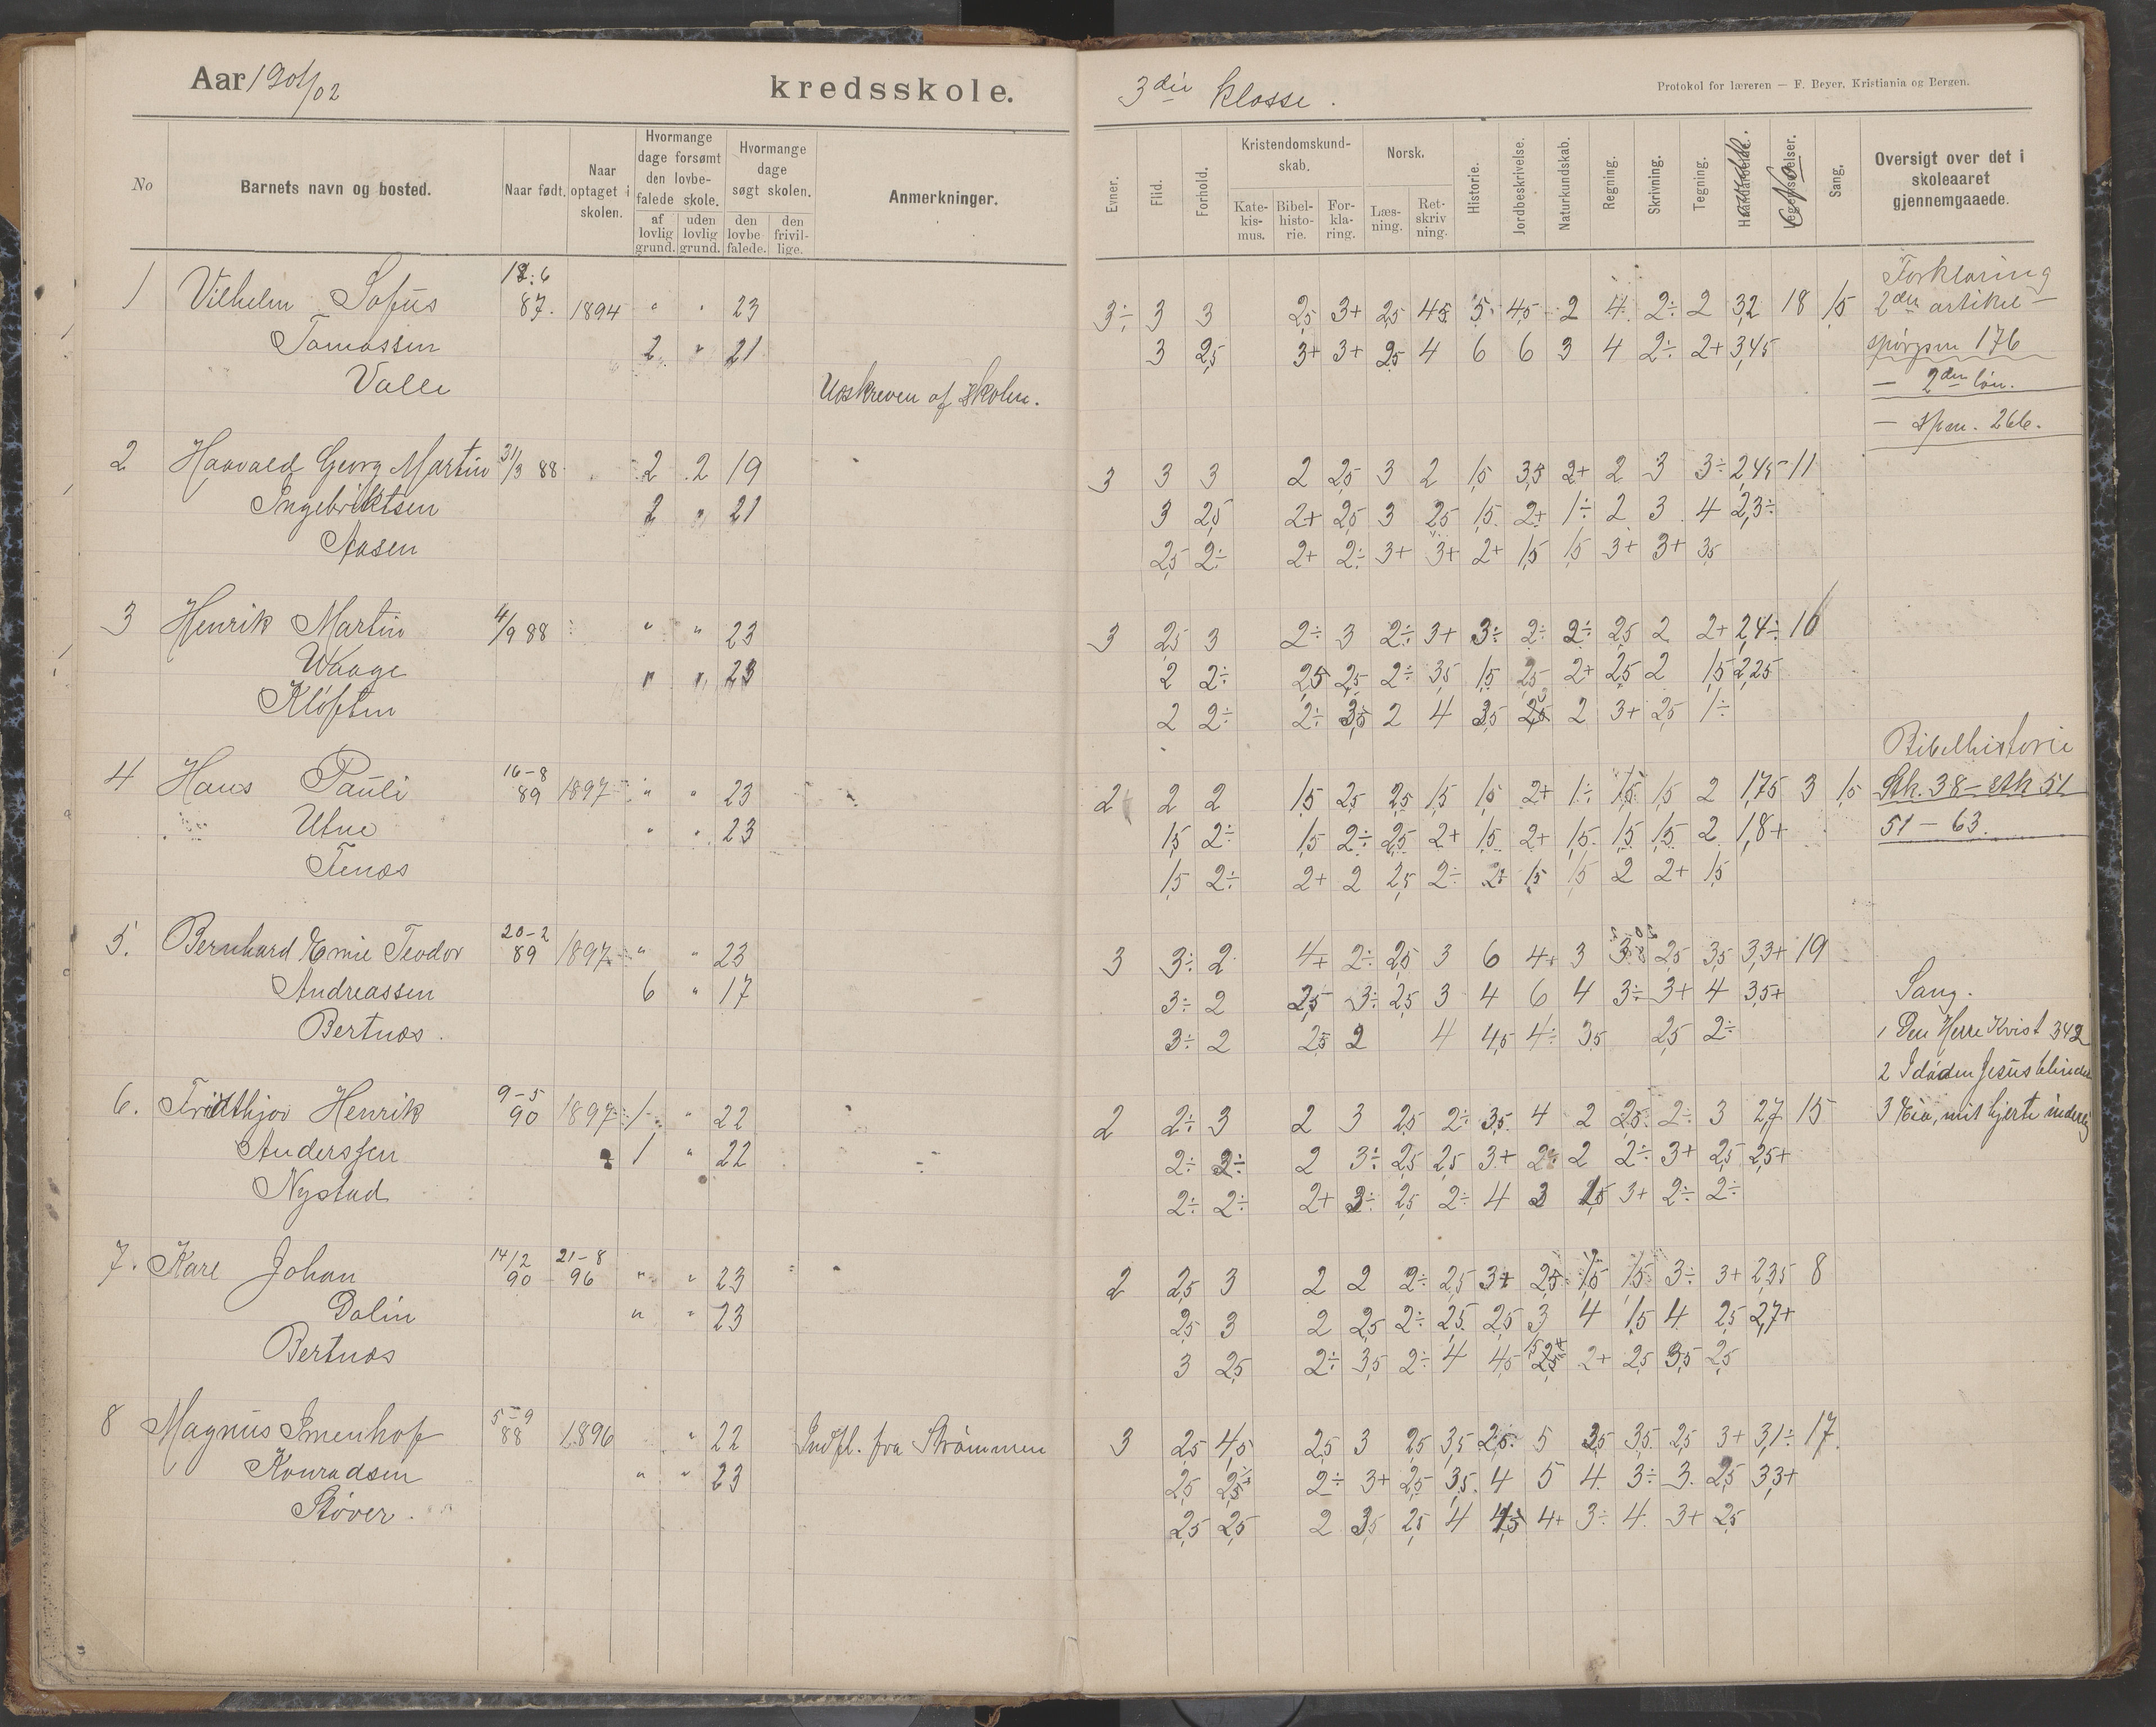 Aar 1901/02 kredsskole.
No
Barnets navn og bosted.
Naar født.
Naar optaget i skolen.
Hvormange dage forsømt den lovbefalede skole.
af lovlig grund.
uden lovlig grund.
Hvormange dage søgt skolen.
den lovbefalede.
den frivillige.
Anmerkninger.
1 Vilhelm Sofus 18.6 87. 1894 " " 23
Tomassen 2 " 21
Valle
Udskreven af skolen.
2 Haavald Georg Martin 31/3 88 2 2 19
Ingebriktsen 2 " 21
Aasen
3 Henrik Martin 4/9 88 " " 23
Waage " " 23
Kløften
4 Hans Pauli 16-8 89 1897 " " 23
Utne " " 23
Tenæs
5. Bernhard Emie Teodor 20-2 89 1897 " " 23
Andreassen 6 " 17
Bertnæs.
6. Fridthjov Henrik 9-5 90 1897 1 " 22
Anderssen 1 " 22
Nystad
7. Karl Johan 14/2 90 21-8 96 " " 23
Dalin " " 23
Bertnæs
8 Magnus Imenhof 5-9 88 1896 " 22 Indfl. fra Strømmen
Konradsen " " 23
Støver.
3die klasse.
Protokol for læreren — F. Beyer, Kristiania og Bergen.
Evner.
Flid.
Forhold.
Kristendomskundskab.
Katekismus.
Bibelhistorie.
Forklaring.
Norsk.
Læsning.
Retskrivning.
Historie.
Jordbeskrivelse.
Naturkundskab.
Regning.
Skrivning.
Tegning.
Haandarbeide.
Legemsøvelser.
Sang.
Oversigt over det i skoleaaret gjennemgaaede.
3÷ 3 3 2,5 3+ 2,5 4,5 5 4,5 2 4 2÷ 2 3,2 18 1,5
3 2,5 3+ 3+ 2,5 4 6 6 3 4 2÷ 2+ 3,45
3 3 3 2 2,5 3 2 1,5 3,5 2+ 2 3 3÷ 2,45 11
3 2,5 2+ 2,5 3 2,5 1,5 2+ 1÷ 2 3 4 2,3÷
2,5 2÷ 2+ 2÷ 3+ 3+ 2+ 1,5 1,5 3+ 3+ 3,5
3 2,5 3 2÷ 3 2÷ 3+ 3÷ 2÷ 2÷ 2,5 2 2+ 2,4÷ 16
2 2÷ 2,5 2,5 2÷ 3,5 1,5 2,5 2+ 2,5 2 1,5 2,25
2 2÷ 2÷ 3,5 2 4 3,5 2,5 2 3+ 2,5 1÷
2 2 2 1,5 2,5 2,5 1,5 1,5 2+ 1÷ 1,5 1,5 2 1,75 3 1,5
1,5 2÷ 1,5 2÷ 2,5 2+ 1,5 2+ 1,5 1,5 1,5 2 1,8+
1,5 2÷ 2+ 2 2,5 2÷ 2+ 1,5 1,5 2 2+ 1,5
3 3÷ 2 4+ 2÷ 2,5 3 6 4+ 3 2,5 3,5 3,3+ 19
3÷ 2 2,5 3÷ 2,5 3 4 6 4 3÷ 3+ 4 3,5+
3÷ 2 2,5 2 4 4,5 4÷ 3,5 2,5 2÷
2 2÷ 3 2 3 2,5 2÷ 3,5 4 2 2,5 2÷ 3 2,7 15
2÷ 2÷ 2 3÷ 2,5 2,5 3+ 2÷ 2 2÷ 3+ 2,5 2,5+
2÷ 2÷ 2+ 3÷ 2,5 2÷ 4 3 1,5 3+ 2÷ 2÷
2 2,5 3 2 2 2÷ 2,5 3+ 2,5 1,5 1,5 3÷ 3+ 2,35 8
2,5 3 2 2,5 2÷ 2,5 2,5 3 4 1,5 4 2,5 2,7+
3 2,5 2÷ 3,5 2÷ 4 4,5 2+ 2,5 3,5 2,5
3 2,5 4,5 2,5 3 2,5 3,5 2,5 5 3,5 3,5 2,5 3+ 3,1÷ 17
2,5 2,5 2÷ 3+ 2,5 3,5 4 5 4 3÷ 3 2,5 3,3+
2,5 2,5 2 3,5 2,5 4 4,5 4+ 3÷ 4 3+ 2,5
Forklaring
2den artikel —
spørgsm 176
— 2den bøn.
— spm. 266.
Bibelhistorie
Stk. 38 — Stk 51
51 — 63.
Sang.
1 Den Herre Krist 342
2 I døden Jesus blinde
3 Eia, mit hjerte inderlig